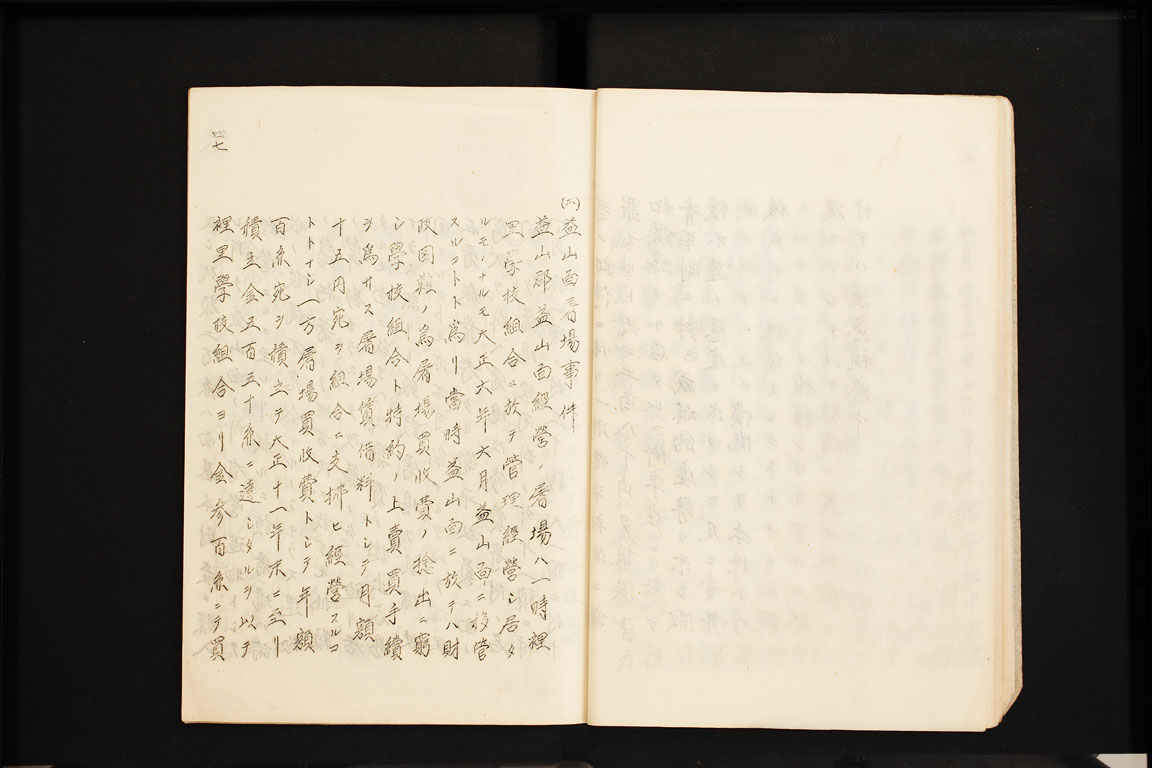 (二)益山面屠場事件
益山郡益山面經營ノ屠場ハ一時裡
里學校組合ニ於テ管理經營シ居タ
ルモノナルモ大正六年六月益山面ニ移管
スルコトト爲リ當時益山面ニ於テハ財
政困難ノ爲屠場買收費ノ捻出ニ窮
シ學校組合ト特約ノ上賣買手續
ヲ爲サス屠場賃借料トシテ月額
十五円宛ヲ組合ニ支拂ヒ經營スルコ
トトナシ一方屠場買收費トシテ年額
百余宛ヲ積立テ大正十一年末ニ至リ
積立金五百五十余ニ達シタルヲ以テ
裡里學校組合ヨリ金参百余ニテ買
四七